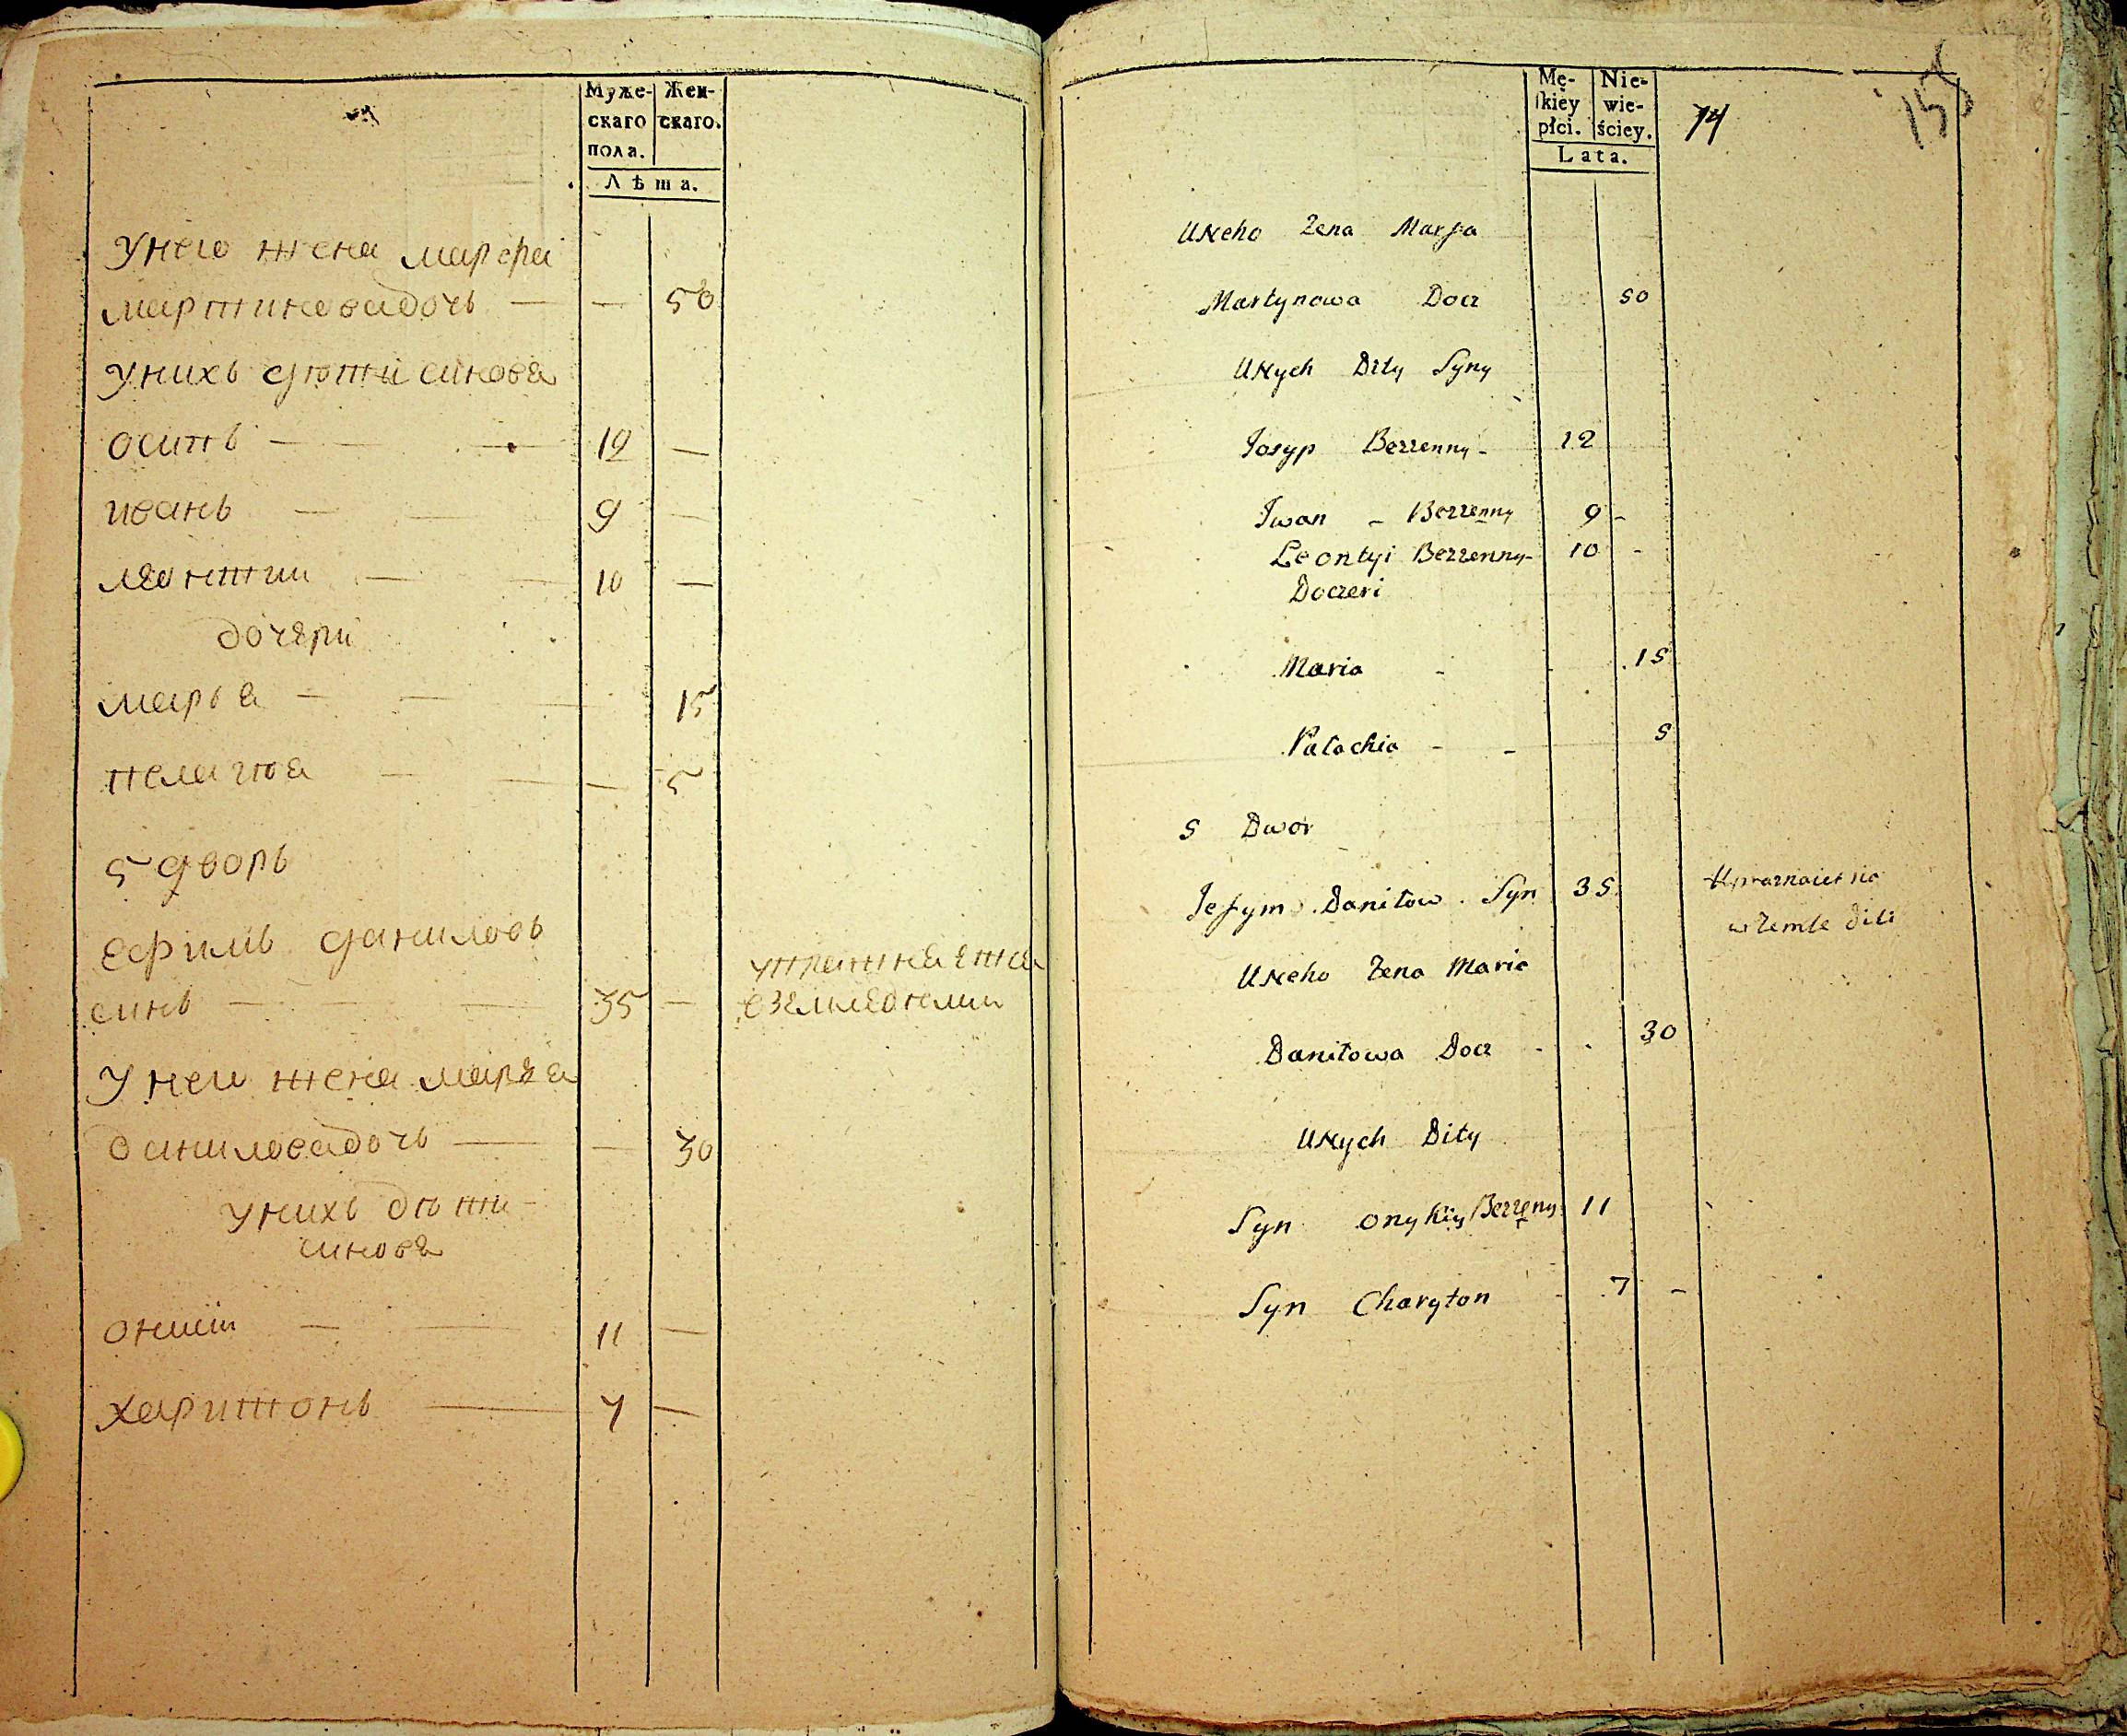 Муже-
скаго
пола.
Жен-
скаго.
Лѣта.
Унего жена марфа
мартиновадочь — — 50
унихъ дѣти синовя
осипъ — — 12 —
иванъ — — 9 —
леонтии — — 10 —
дочери
марья — — — 15
пелагѣя — — — 5
5 дворъ
ефимъ даниловъ
синъ — — — 35 —
упражняется
вземледелии
Унего жена маря
даниловадочь — — 30
унихъ дѣти —
синовя
— — 11 —
харитонъ — 7 —
Mę-
kiey
płci.
Nie-
wie-
ściey.
Lata.
74
UNeho Żena Marfa
Martynowa Docz 50
UNych Dity Syny
Josyp Bezżenny - 12
Jwan - Bezżenny 9 -
Leontyi Bezżenny - 10 -
Doczeri
Maria - - 15
Pałachia - - 5
5 Dwor
Jefym Daniłow Syn 35
UNeho Żena Maria
Daniłowa Docz - - 30
UNych Dity
Syn Onykiy Bezżenny 11
Syn Charyton - 7 -